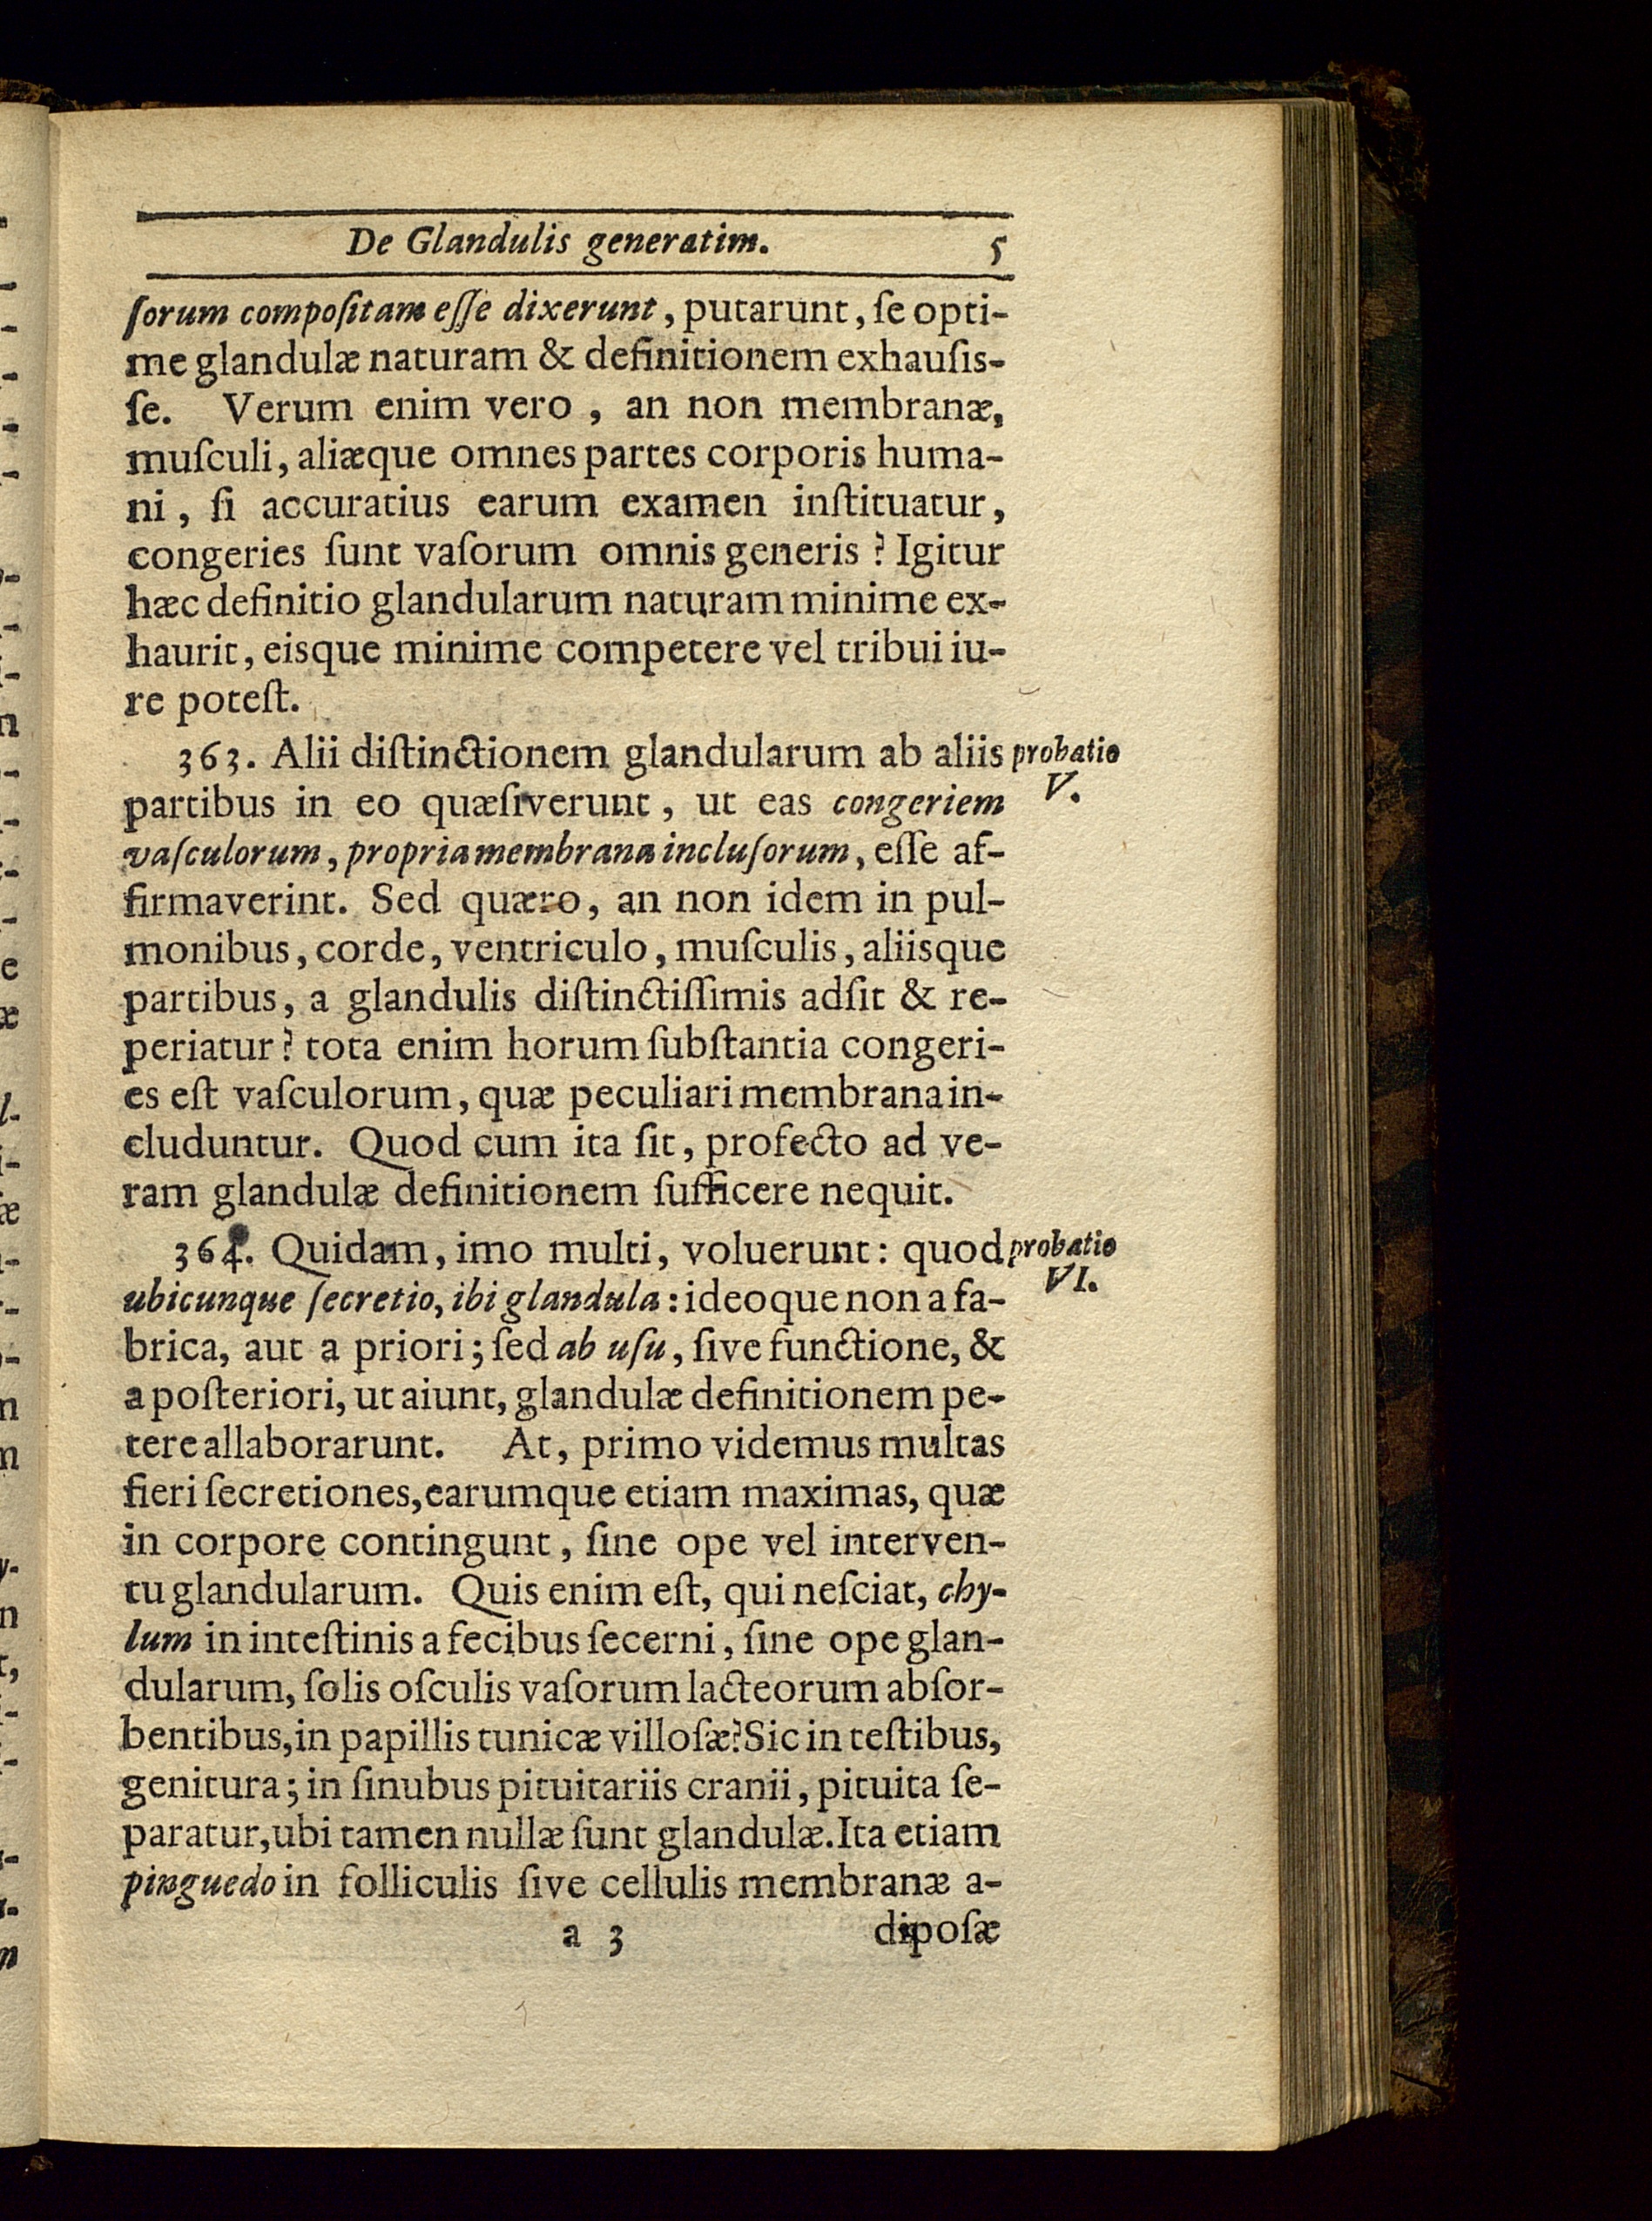 De Glandulis generatim. 5
ſorum compoſitam eſſe dixerunt, putarunt, ſe opti-
me glandulæ naturam & definitionem exhauſis-
ſe. Verum enim vero, an non membranæ,
muſculi, aliæque omnes partes corporis huma-
ni, ſi accuratius earum examen inſtituatur,
congeries ſunt vaſorum omnis generis? Igitur
hæc definitio glandularum naturam minime ex-
haurit, eisque minime competere vel tribui iu-
re poteſt.
363. Alii diſtinctionem glandularum ab aliis probatio
partibus in eo quæſiverunt, ut eas congeriem V.
vaſculorum, propria membrana incluſorum, eſſe af-
firmaverint. Sed quæro, an non idem in pul-
monibus, corde, ventriculo, muſculis, aliisque
partibus, a glandulis diſtinctiſſimis adſit & re-
periatur? tota enim horum ſubſtantia congeri-
es eſt vaſculorum, quæ peculiari membrana in-
cluduntur. Quod cum ita ſit, profecto ad ve-
ram glandulæ definitionem ſufficere nequit.
364. Quidam, imo multi, voluerunt: quod probatio
ubicunque ſecretio, ibi glandula: ideoque non a fa- VI.
brica, aut a priori; ſed ab uſu, ſive functione, &
a poſteriori, ut aiunt, glandulæ definitionem pe-
tere allaborarunt. At, primo videmus multas
fieri ſecretiones, earumque etiam maximas, quæ
in corpore contingunt, ſine ope vel interven-
tu glandularum. Quis enim eſt, qui neſciat, chy-
lum in inteſtinis a fecibus ſecerni, ſine ope glan-
dularum, ſolis oſculis vaſorum lacteorum abſor-
bentibus, in papillis tunicæ villoſæ? Sic in teſtibus,
genitura; in ſinubus pituitariis cranii, pituita ſe-
paratur, ubi tamen nullæ ſunt glandulæ. Ita etiam
pinguedo in folliculis ſive cellulis membranæ a-
a 3 dipoſæ